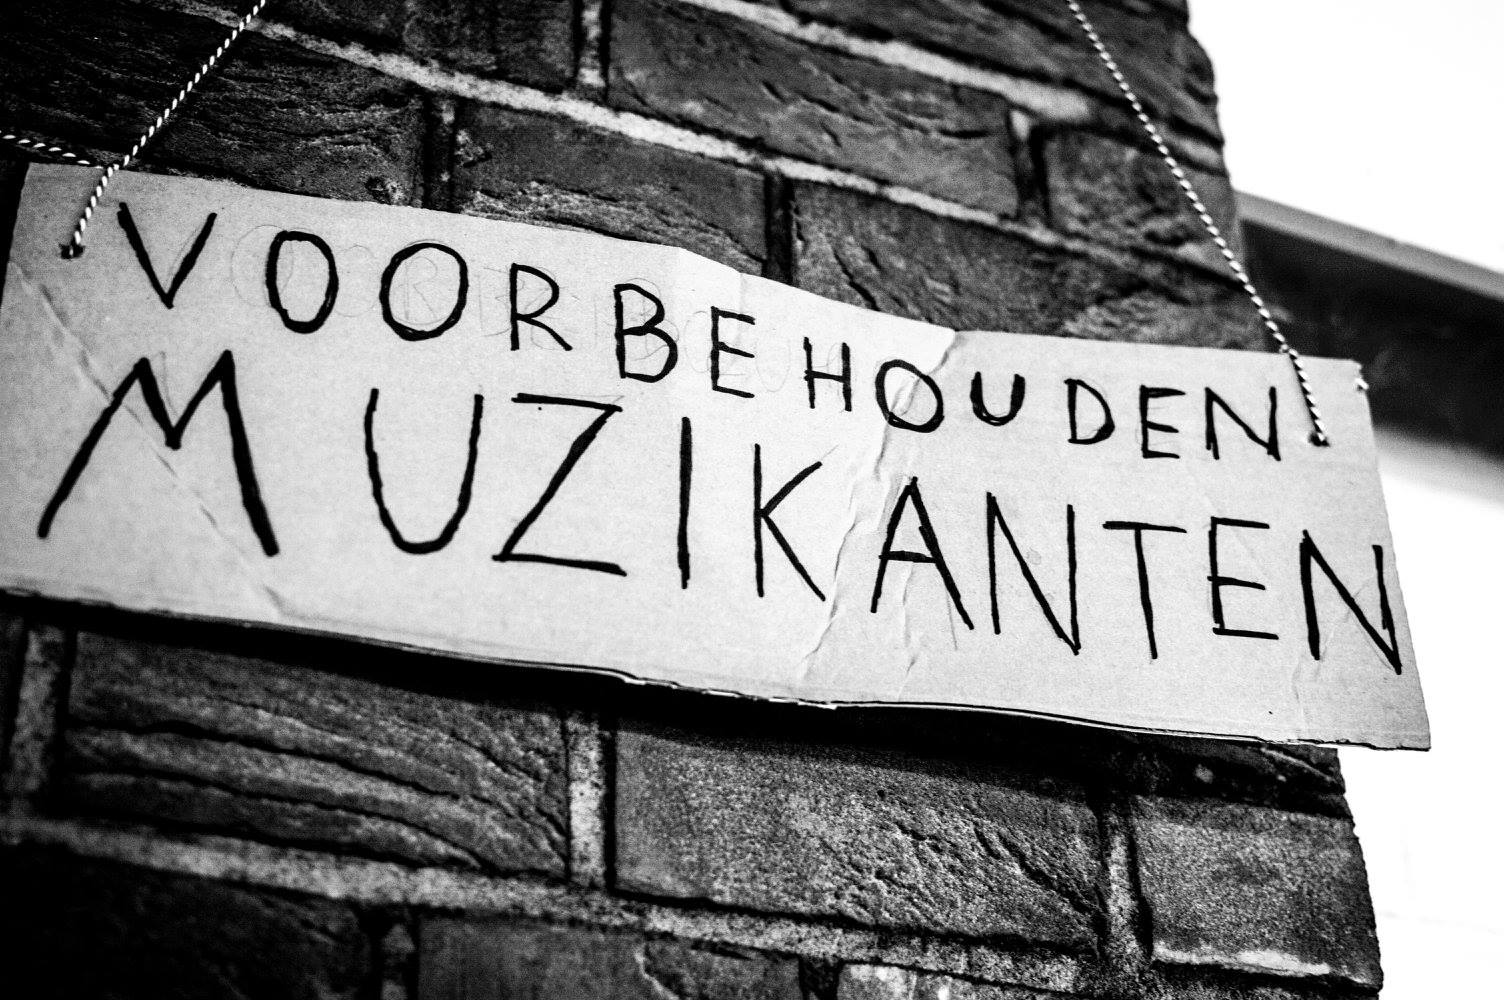 VOORBEHOUDEN
MUZIKANTEN